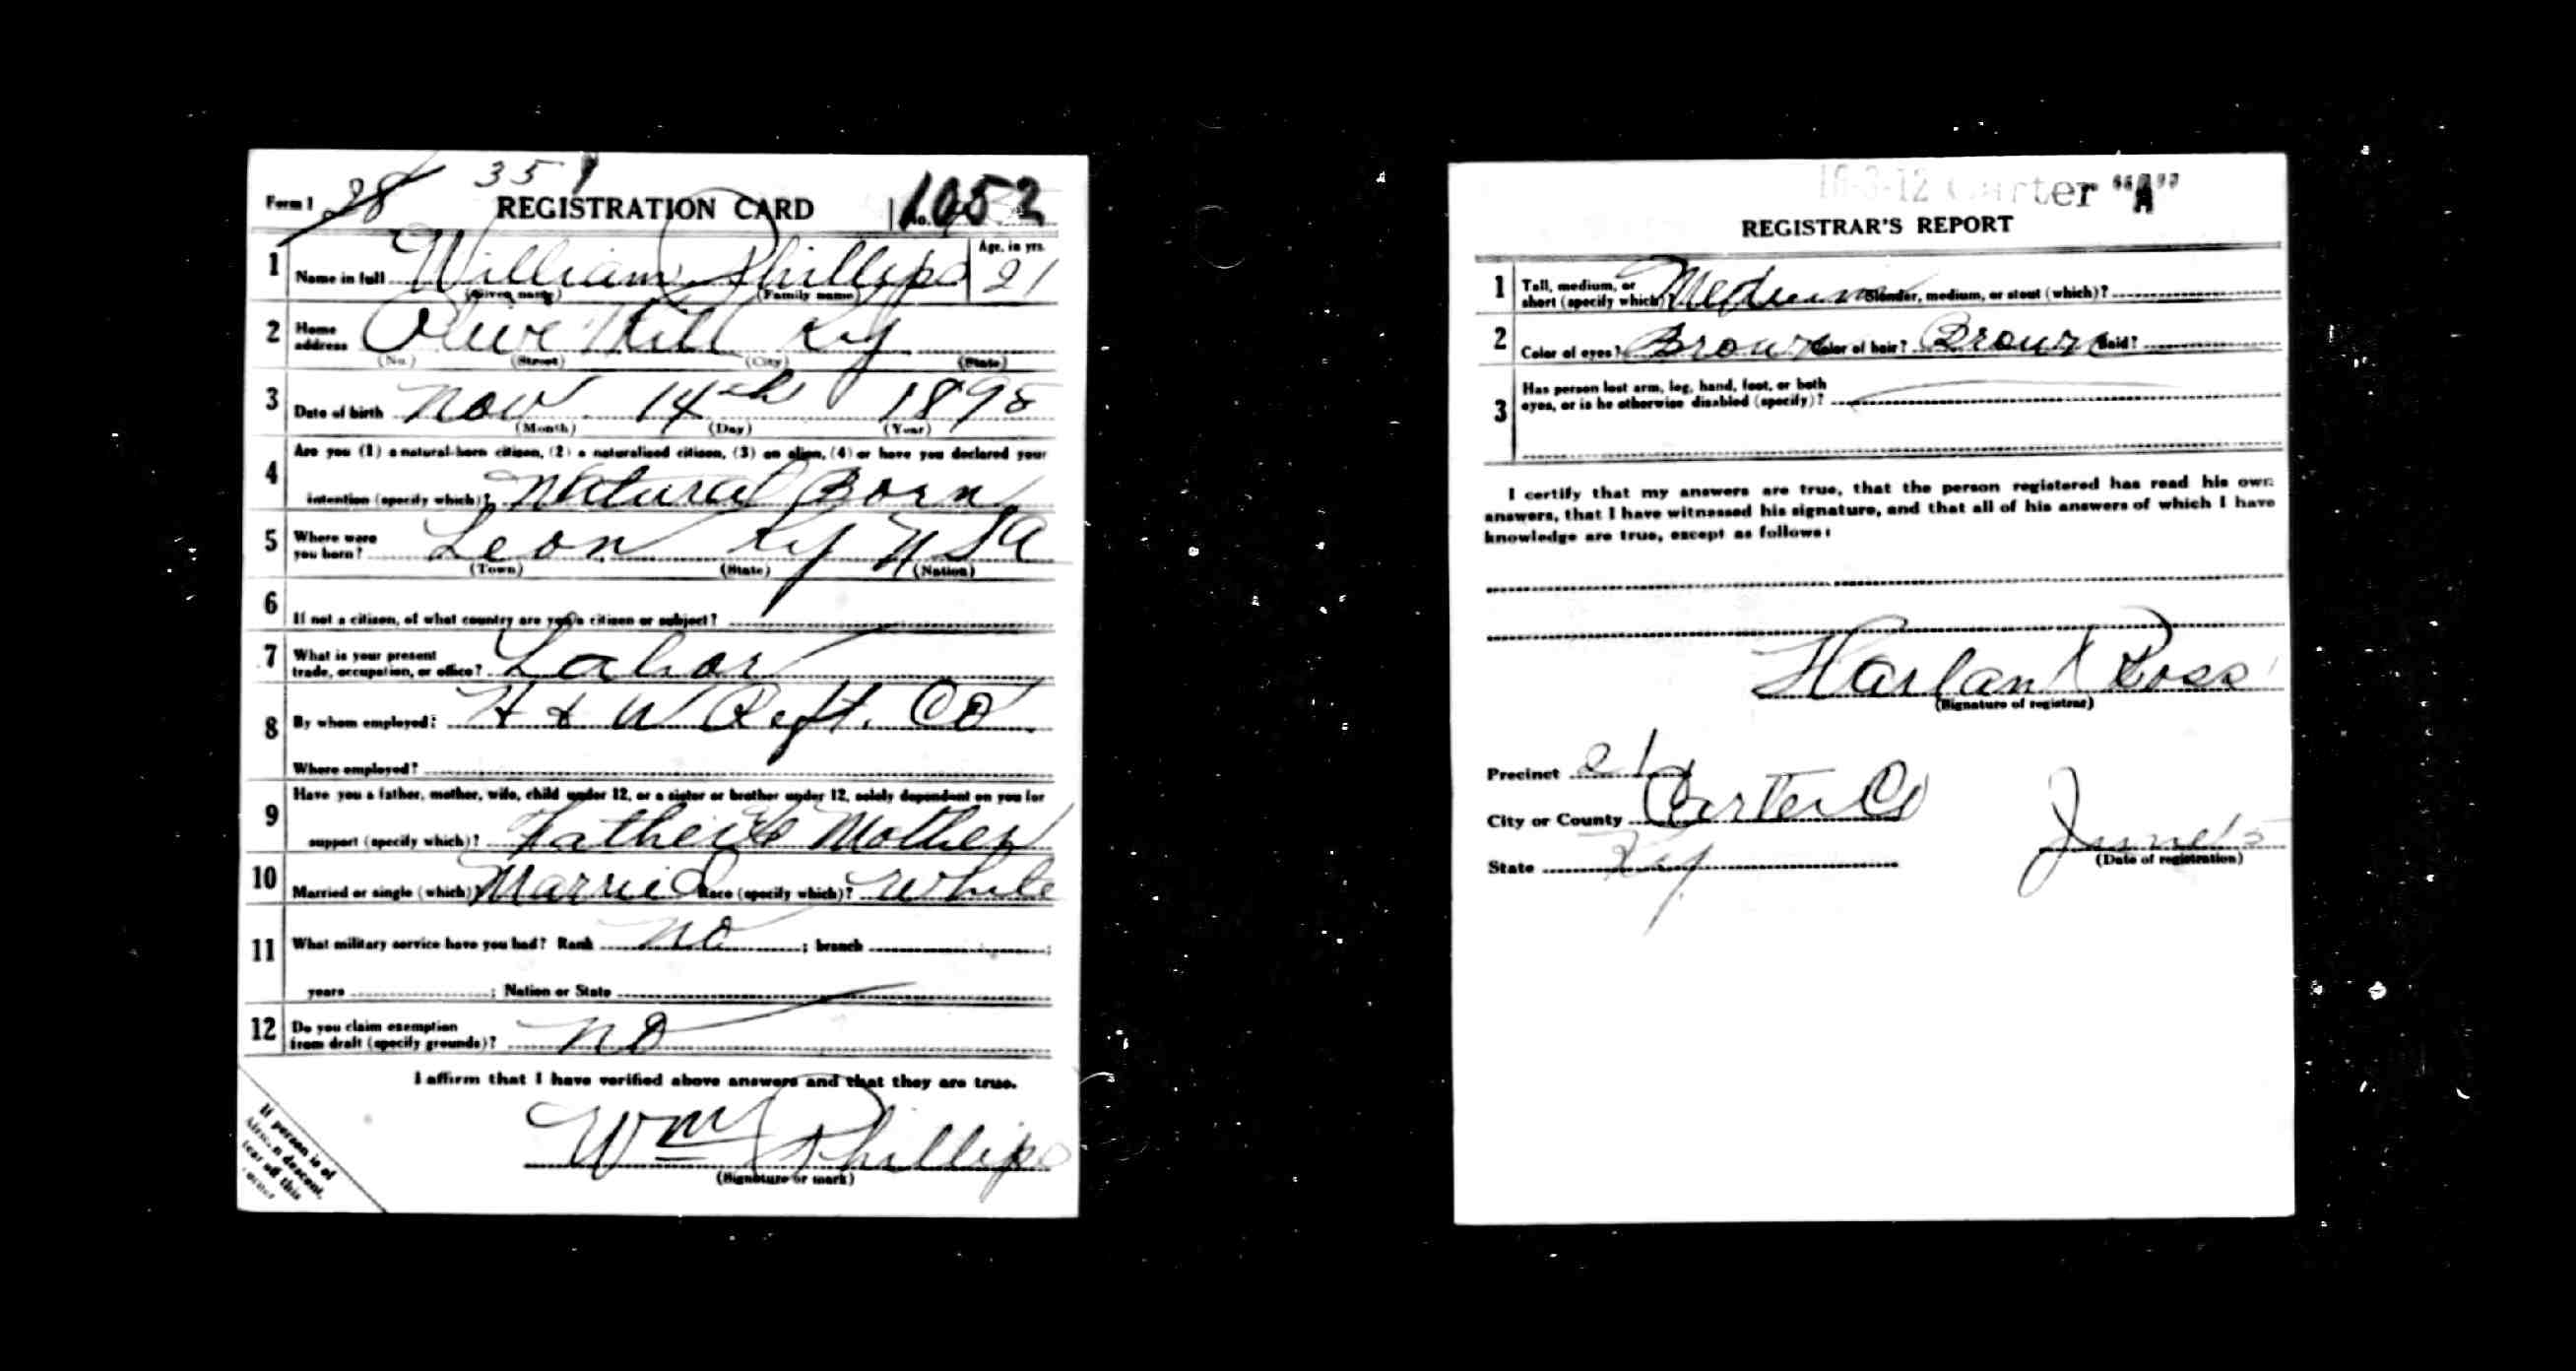 35
Form 1 28 REGISTRATION CARD No. 1052
1 Name in full William Phillips Age, in yrs. 21
(Given name) (Family name)
2 Home address Olive Hill Ky
(No.) (Street) (City) (State)
3 Date of birth Nov 14th 1895
(Month) (Day) (Year)
4 Are you (1) a natural-born citizen, (2) a naturalized citizen, (3) an alien, (4) or have you declared your
intention (specify which)? Natural Born
5 Where were you born? Leon Ky USA
(Town) (State) (Nation)
6 If not a citizen, of what country are you a citizen or subject?
7 What is your present
trade, occupation, or office? Labor
8 By whom employed? H & W Reft. Co
Where employed?
9 Have you a father, mother, wife, child under 12, or a sister or brother under 12, solely dependent on you for
support (specify which)? Father & Mother
10 Married or single (which)? Married Race (specify which)? White
11 What military service have you had? Rank no ; branch ;
years ; Nation or State
12 Do you claim exemption
from draft (specify grounds)? no
I affirm that I have verified above answers and that they are true.
Wm Phillips
(Signature or mark)
If person is of
African descent,
tear off this
corner
16-3-12 Carter "A"
REGISTRAR'S REPORT
1 Tall, medium, or
short (specify which)? Medium Slender, medium, or stout (which)?
2 Color of eyes? Brown Color of hair? Brown Bald?
3 Has person lost arm, leg, hand, foot, or both
eyes, or is he otherwise disabled (specify)?
I certify that my answers are true, that the person registered has read his own
answers, that I have witnessed his signature, and that all of his answers of which I have
knowledge are true, except as follows:
Harlan Ross
(Signature of registrar)
Precinct 21
City or County Carter Co
State Ky. June 5
(Date of registration)